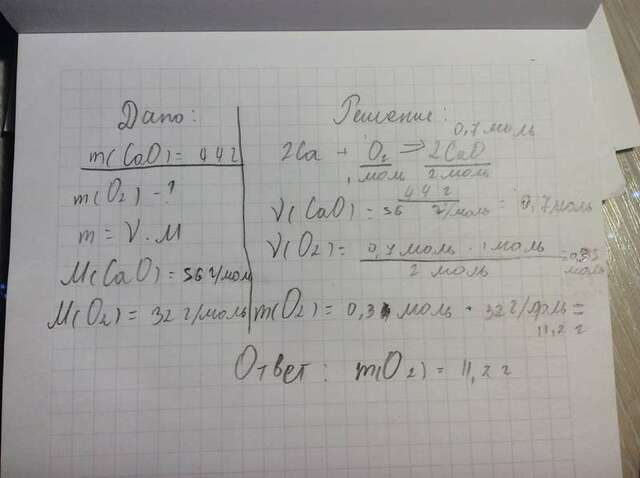 Дано:
m(CaO) = 44 г
m(O2) - ?
m = V · M
M(CaO) = 56 г/моль
M(O2) = 32 г/моль
Решение:
0,7 моль
2Ca + O2 => 2CaO
1 моль 2 моль
V(CaO) = 44 г / 56 г/моль = 0,7 моль
V(O2) = 0,7 моль · 1 моль / 2 моль = 0,35 моль
m(O2) = моль · 32 г/моль = 11,2 г
Ответ: m(O2) = 11,2 г